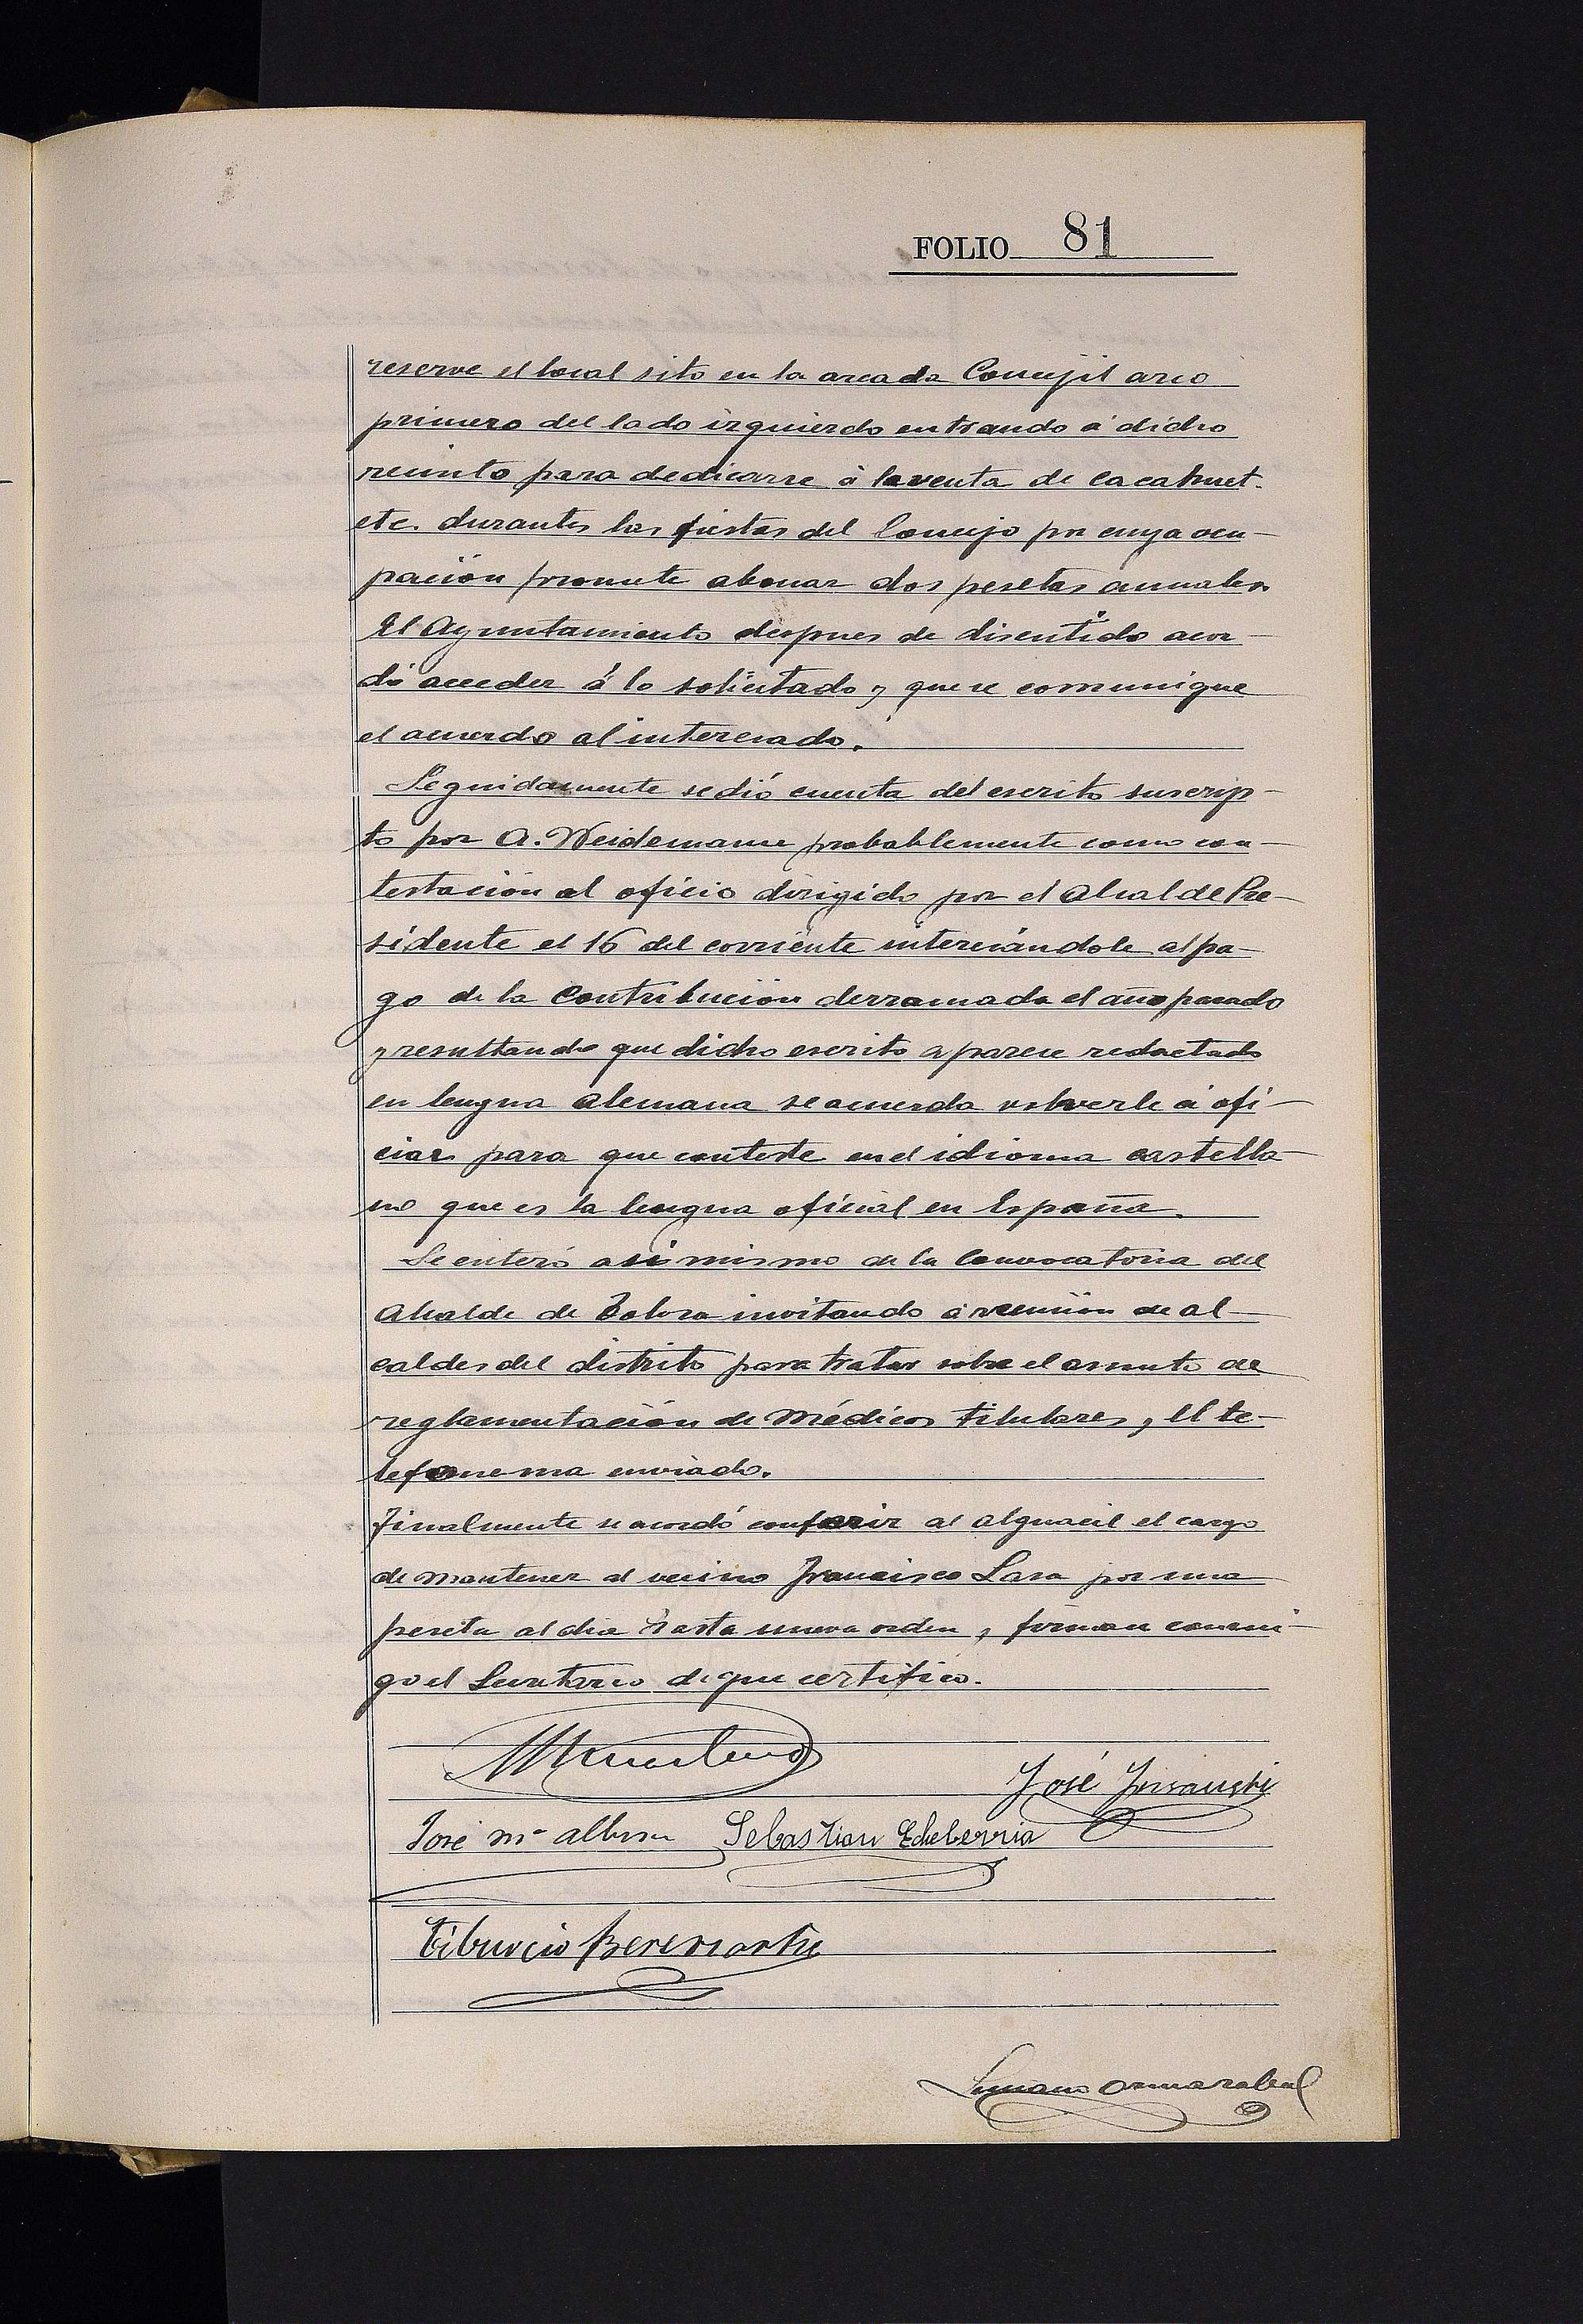 FOLIO 81
reserve el local sito en la arcada Concejil arco
primero del lado izquierdo entrando á dicho
recinto para dedicarse á la venta de cacahuet.
etc. durantes las fiestas del Concejo por cuya ocu-
pación promete abonar dos pesetas annales.
El Ayuntamiento despues de discutido acor-
dó acceder á lo solicitado y que se comunique
el acuerdo al interesado.
Seguidamente se dió cuenta del escrito suscrip-
to por A. Weidemanne probablemente como con-
testación al oficio dirigido por el Alcalde Pre-
sidente el 16 del corriente interesándole al pa-
go de la Contribución derramada el año pasado
y resultando que dicho escrito aparece redactado
en lengua alemana se acuerda volverle á ofi-
ciar para que conteste en el idioma castella-
no que es la lengua oficial en España.
Se enteró asi mismo de la Convocatoria del
Alcalde de Tolosa invitando á reunión de al-
caldes del distrito para tratar sobre el asunto de
reglamentación de Médicos titulares, y el te-
lefonema enviado.
Finalmente se acordó conferir al alguacil el cargo
de mantener al vecino Francisco Lasa por una
peseta al dia hasta nueva orden, y firman conmi-
go el Secretario de que certifico.
José
José Mª
Sebastian Echeberria
Tiburcio Beresiartu
Luciano